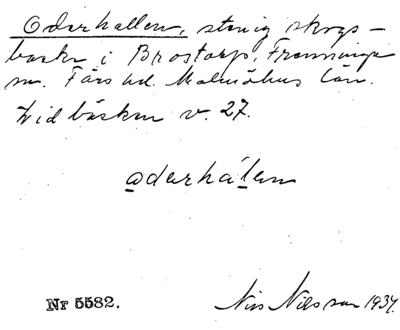 Oderhallen, stenig skogs-
backe i Brostarp, Frenninge
sn. Färs hd. Malmöhus län.
Vid bäcken v. 27.
oderhálen
Nr 5582.
Nils Nilsson 1934.